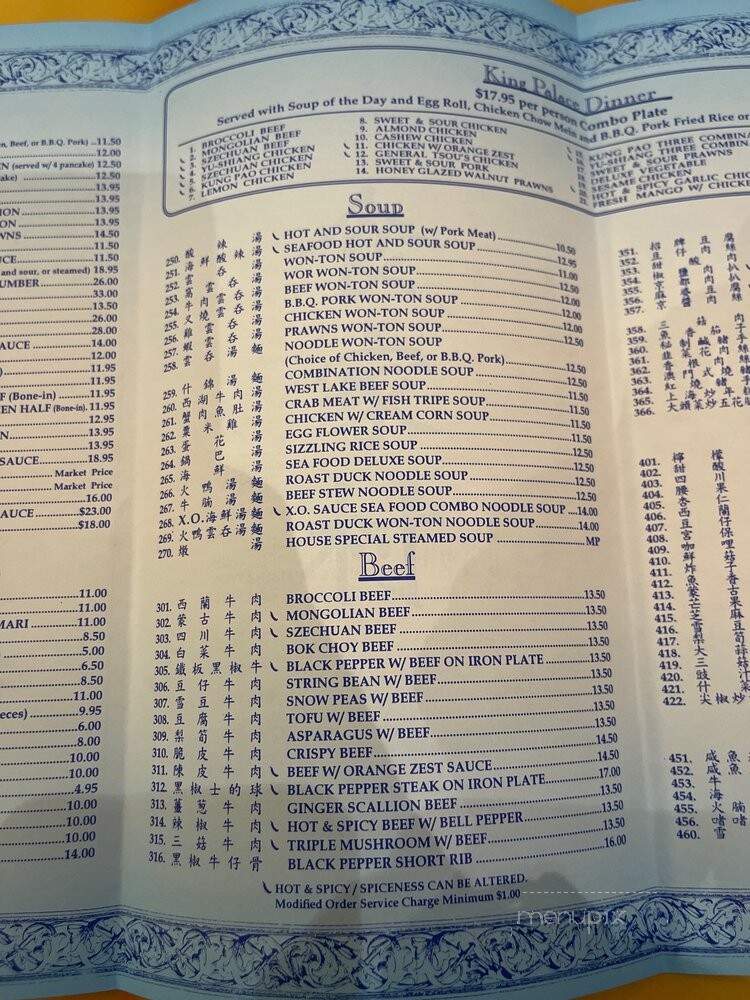 n, Beef, or B.B.Q. Pork) ..11.50
12.00
EN (served w/ 4 pancake) 12.50
ake) 12.50
13.95
13.95
ION 13.95
ON 13.95
AWNS 14.50
11.50
CE 11.50
and sour, or steamed) 18.95
UMBER 26.00
33.00
13.50
26.00
28.00
AUCE 14.00
12.00
) 11.95
F (Bone-in) 11.95
EN HALF (Bone-in). 11.95
12.95
N 13.95
13.95
SAUCE 18.95
Market Price
Market Price
16.00
AUCE $23.00
$18.00
11.00
11.00
MARI 11.00
8.50
5.00
6.50
8.50
11.00
eces) 9.95
6.00
8.00
10.00
10.00
4.95
10.00
10.00
10.00
14.00
King Palace Dinner
$17.95 per person Combo Plate
Served with Soup of the Day and Egg Roll, Chicken Chow Mein and B.B.Q. Pork Fried Rice or
1. BROCCOLI BEEF
2. MONGOLIAN BEEF
3. SZECHUAN BEEF
4. YUSHIANG CHICKEN
5. SZECHUAN CHICKEN
6. KUNG PAO CHICKEN
7. LEMON CHICKEN
8. SWEET & SOUR CHICKEN
9. ALMOND CHICKEN
10. CASHEW CHICKEN
11. CHICKEN W/ ORANGE ZEST
12. GENERAL TSOU'S CHICKEN
13. SWEET & SOUR PORK
14. HONEY GLAZED WALNUT PRAWNS
KUNG PAO THREE COMBIN
YUSHIANG THREE COMBIN
SWEET & SOUR PRAWNS
DELUXE VEGETABLE
SESAME CHICKEN
HOT & SPICY GARLIC CHIC
FRESH MANGO W/ CHICKEN
Soup
250. 酸辣湯 HOT AND SOUR SOUP (w/ Pork Meat) 10.50
251. 海鮮酸辣湯 SEAFOOD HOT AND SOUR SOUP 12.95
252. 雲吞湯 WON-TON SOUP 11.00
253. 窩雲吞湯 WOR WON-TON SOUP 12.50
254. 牛肉雲吞湯 BEEF WON-TON SOUP 12.00
255. 叉燒雲吞湯 B.B.Q. PORK WON-TON SOUP 12.00
256. 雞雲吞湯 CHICKEN WON-TON SOUP 12.00
257. 蝦雲吞湯 PRAWNS WON-TON SOUP 12.50
258. 雲吞湯麵 NOODLE WON-TON SOUP
(Choice of Chicken, Beef, or B.B.Q. Pork) 12.50
259. 什錦湯麵 COMBINATION NOODLE SOUP 12.50
260. 西湖牛肉 WEST LAKE BEEF SOUP 11.50
261. 蟹肉魚肚湯 CRAB MEAT W/ FISH TRIPE SOUP 12.50
262. 粟米雞湯 CHICKEN W/ CREAM CORN SOUP 11.50
263. 蛋花湯 EGG FLOWER SOUP 11.50
264. 鍋巴湯 SIZZLING RICE SOUP 11.50
265. 海鮮湯 SEA FOOD DELUXE SOUP 12.50
266. 火鴨湯麵 ROAST DUCK NOODLE SOUP 12.50
267. 牛腩湯麵 BEEF STEW NOODLE SOUP 12.50
268. X.O.海鮮湯麵 X.O. SAUCE SEA FOOD COMBO NOODLE SOUP 14.00
269. 火鴨雲吞湯麵 ROAST DUCK WON-TON NOODLE SOUP 14.00
270. 燉湯 HOUSE SPECIAL STEAMED SOUP MP
Beef
301. 西蘭牛肉 BROCCOLI BEEF 13.50
302. 蒙古牛肉 MONGOLIAN BEEF 13.50
303. 四川牛肉 SZECHUAN BEEF 13.50
304. 白菜牛肉 BOK CHOY BEEF 13.50
305. 鐵板黑椒牛 BLACK PEPPER W/ BEEF ON IRON PLATE 13.50
306. 豆仔牛肉 STRING BEAN W/ BEEF 13.50
307. 雪豆牛肉 SNOW PEAS W/ BEEF 13.50
308. 豆腐牛肉 TOFU W/ BEEF 13.50
309. 梨筍牛肉 ASPARAGUS W/ BEEF 14.50
310. 脆皮牛肉 CRISPY BEEF 14.50
311. 陳皮牛肉 BEEF W/ ORANGE ZEST SAUCE 14.50
312. 黑椒士的球 BLACK PEPPER STEAK ON IRON PLATE 17.00
313. 薑蔥牛肉 GINGER SCALLION BEEF 13.50
314. 辣椒牛肉 HOT & SPICY BEEF W/ BELL PEPPER 13.50
315. 三菇牛肉 TRIPLE MUSHROOM W/ BEEF 13.50
316. 黑椒牛仔骨 BLACK PEPPER SHORT RIB 16.00
HOT & SPICY / SPICENESS CAN BE ALTERED.
Modified Order Service Charge Minimum $1.00
351.
352.
353.
354.
355.
356.
357.
358.
359.
360.
361.
364.
365.
366.
401.
402.
403.
404.
405.
406.
407.
408.
409.
410.
411.
412.
413.
414.
415.
416.
417.
418.
419.
420.
421.
422.
451. 咸魚
452. 咸魚
453. 牛
454. 海
455. 火腩
456. 啫啫
460. 雪
menupix